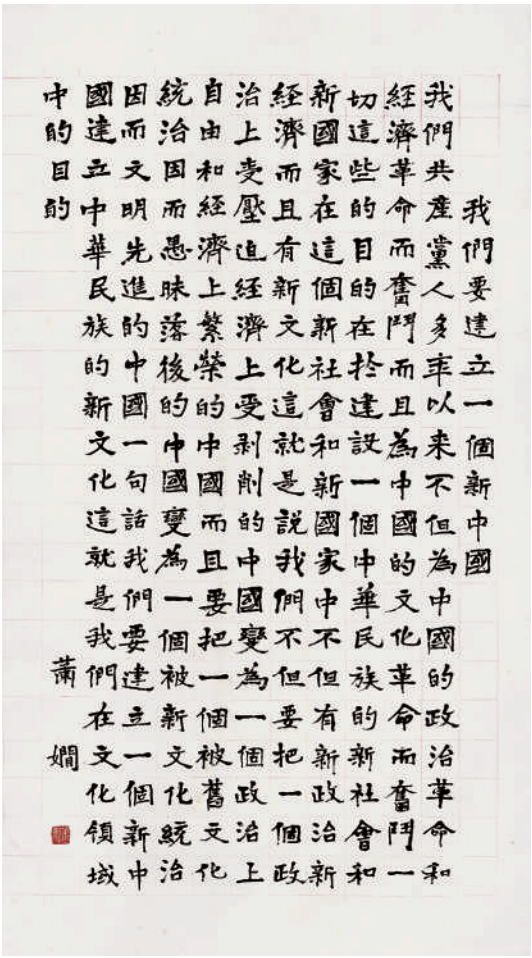 我們要建立一個新中國
我們共產黨人多年以来不但為中國的政治革命和
經濟革命而奮鬥而且為中國的文化革命而奮鬥一
切這些的目的在扵建設一個中華民族的新社會和
新國家在這個新社會和新國家中不但有新政治新
經濟而且有新文化這就是說我們不但要把一個政
治上受壓迫經濟上受剥削的中國變為一個政治上
自由和經濟上繁榮的中國而且要把一個被舊文化
統治因而愚昧落後的中國變為一個被新文化統治
因而文明先進的中國一句話我們要建立一個新中
國建立中華民族的新文化這就是我們在文化領域
中的目的
蕭嫻